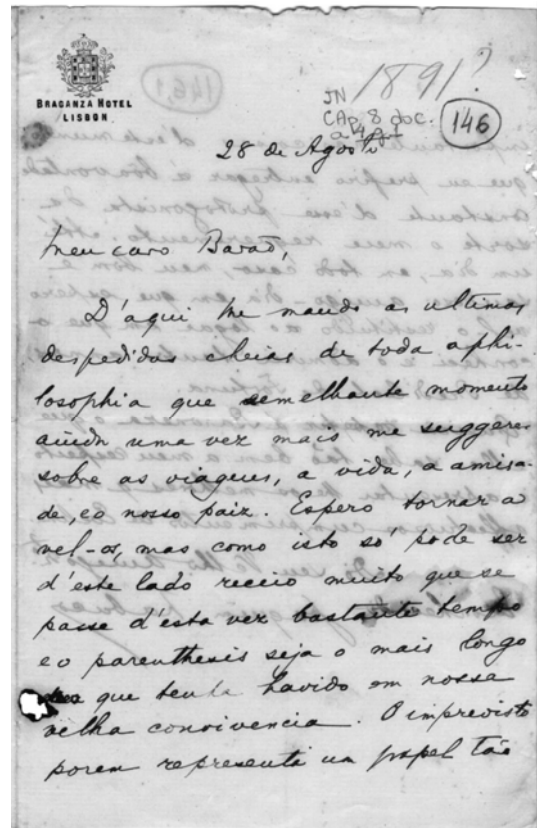 BRAGANZA HOTEL
LISBON
1891?
JN
CAp 8 doc.
146
28 de Agosto
Meu caro Barão,
D'aqui lhe mando as ultimas
despedidas cheias de toda a phi-
losophia que semelhante momento
ainda uma vez mais me suggere
sobre as viagens, a vida, a amisa-
de, e o nosso paiz. Espero tornar a
vel-os, mas como isto só pode ser
d'este lado receio muito que se
passe d'esta vez bastante tempo
e o parenthesis seja o mais longo
que tenha havido em nossa
velha convivencia. O imprevisto
porem representa um papel tão